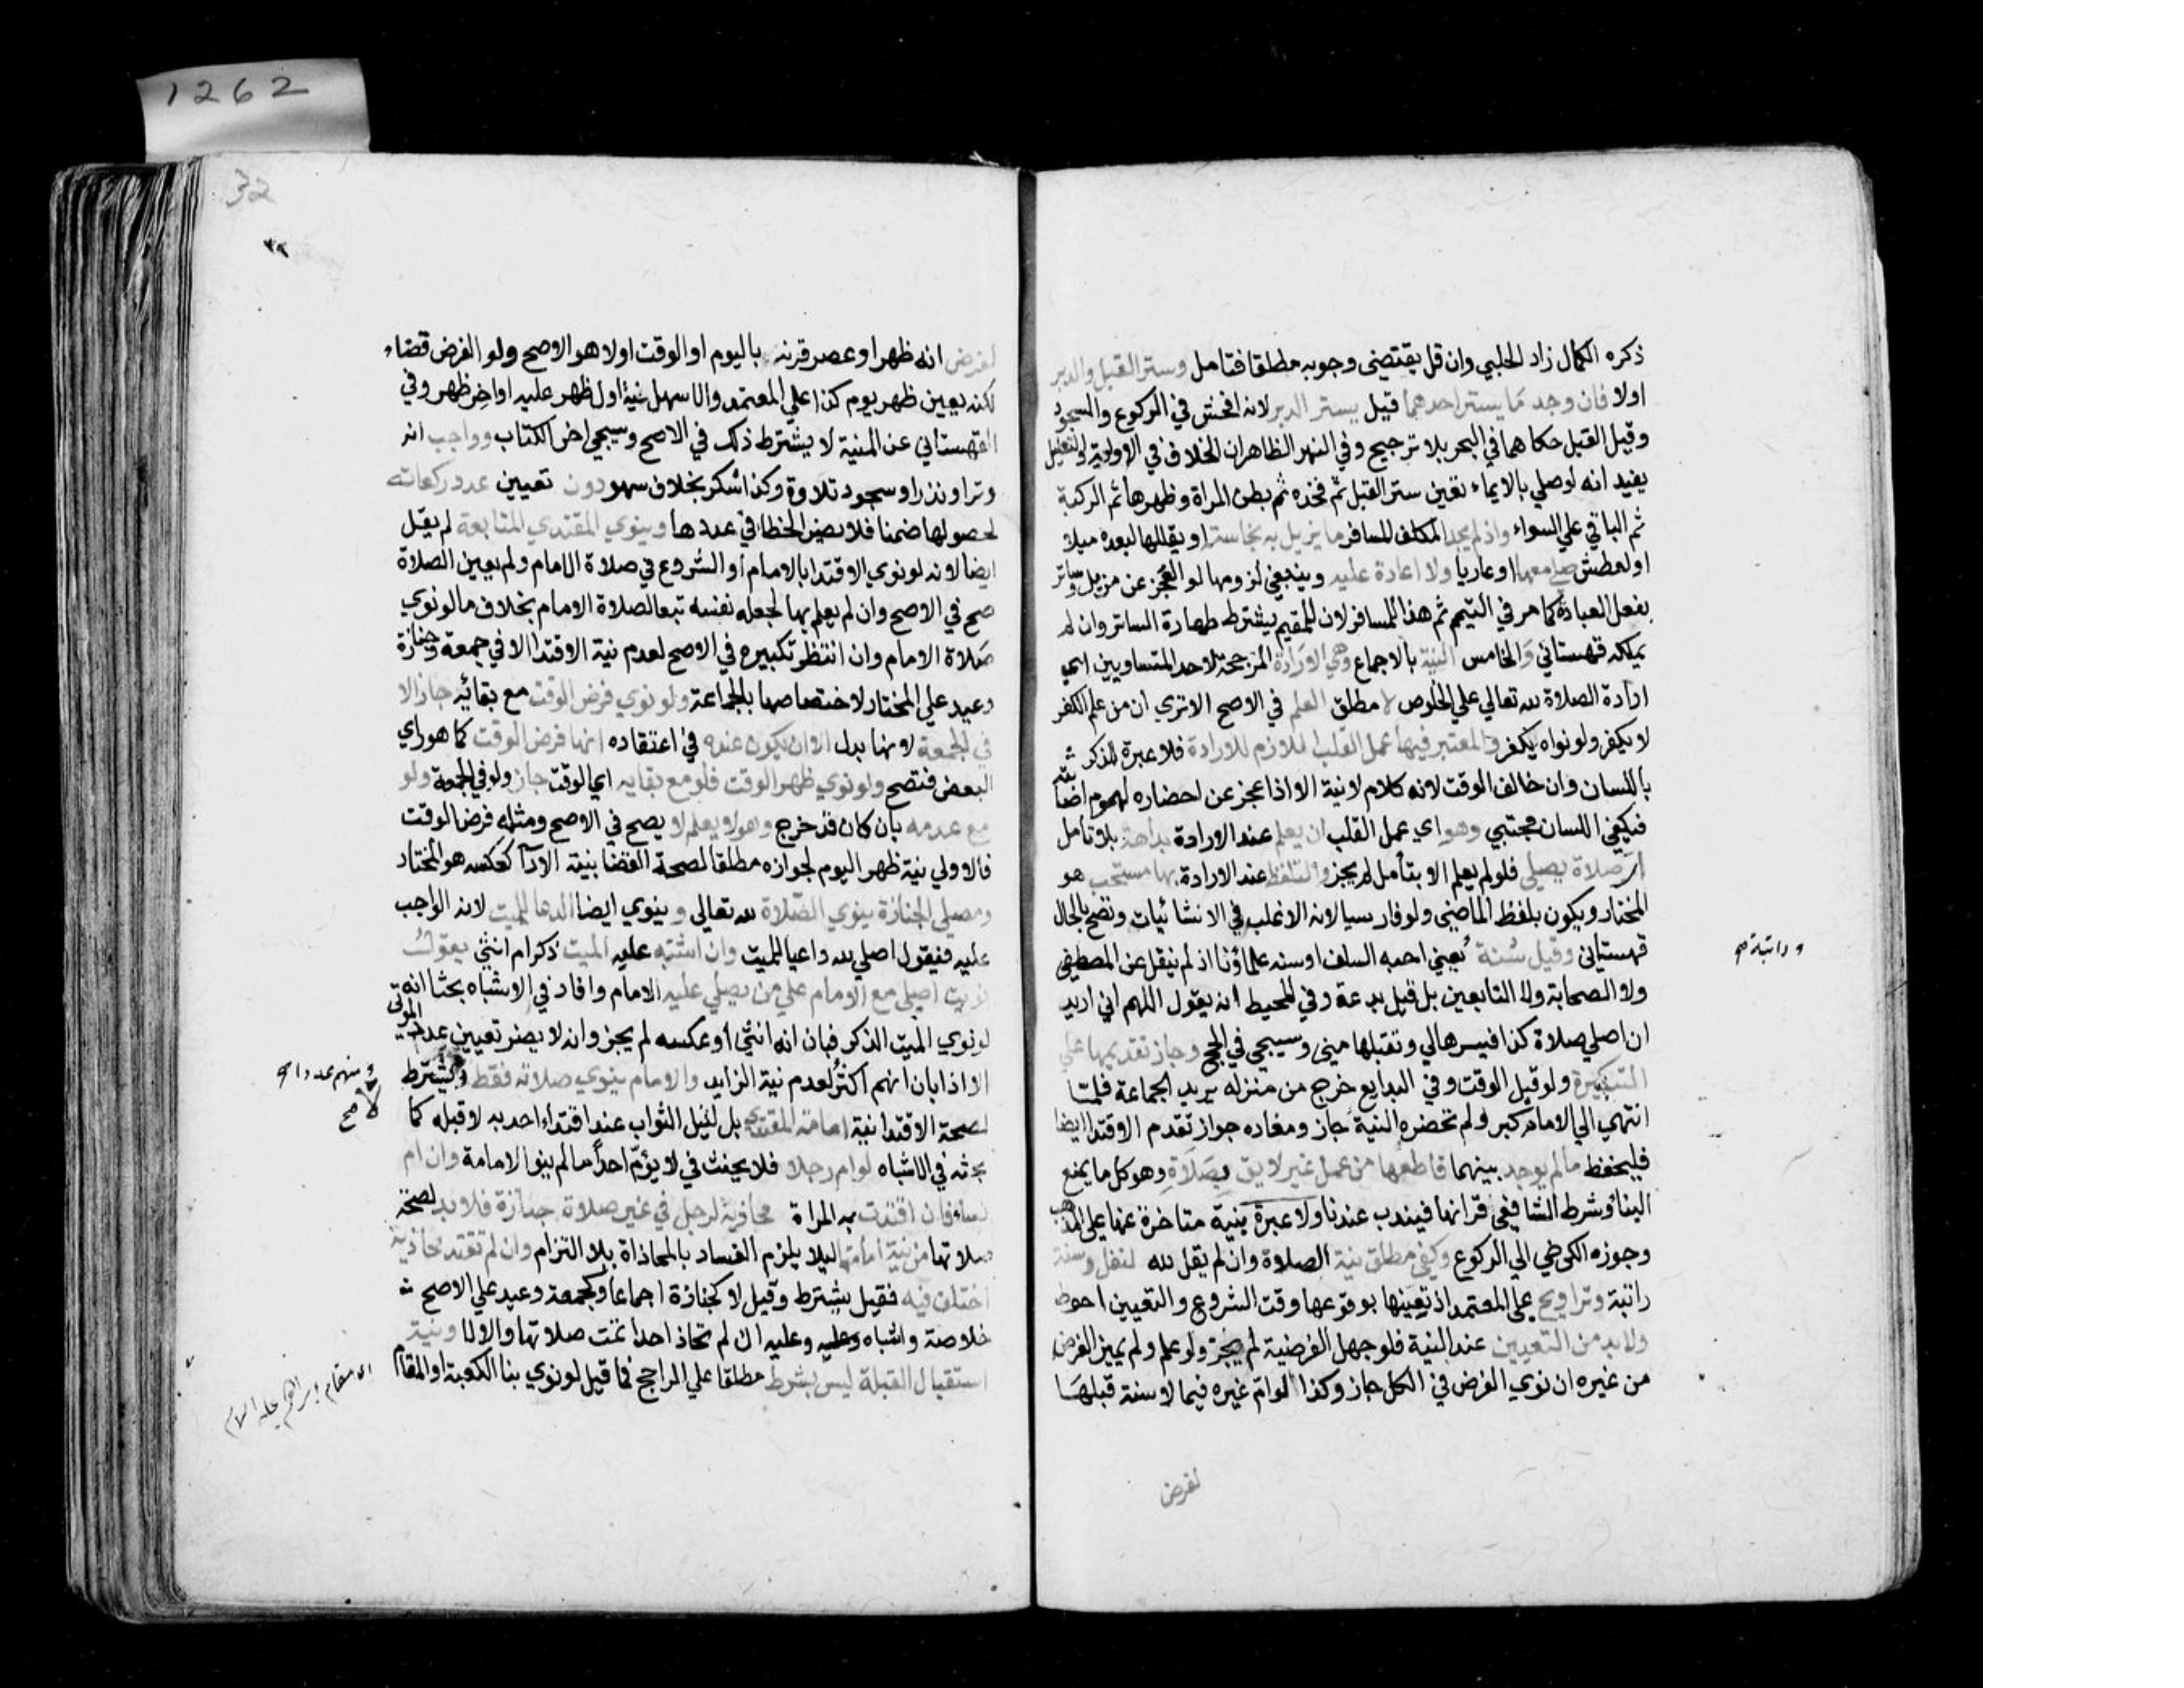 1262
ذكره الكمال زاد الحلبي وان قل يقتضي وجوبه مطلقا فتامل وستر القبل والدبر
اولا فان وجد ما يستر احدهما قيل يستر الدبر لانه افحش في الركوع والسجود
وقيل القبل حكاهما في البحر بلا ترجيح وفي النهر الظاهر ان الخلاف في الاولوية والتعليل
يفيد انه لو صلي بالايماء تعين ستر القبل ثم فخذه ثم بطن المراة وظهرها ثم الركبة
ثم الباقي علي السواء واذ لم يجد المكلف المسافر ما يزيل به نجاسته او يقللها لبعده ميلا
او لعطش صلي معها او عاريا ولا اعادة عليه وينبغي لزومها لو العجز عن مزيل وساتر
بفعل العباد كما مر في التيمم ثم هذا للمسافر لان للمقيم يشترط طهارة الساتر وان لم
يملكه قهستاني والخامس النية بالاجماع وهي الارادة المرجحة لاحد المتساويين اي
ارادة الصلاة لله تعالي علي الخلوص لا مطلق العلم في الاصح الا تري ان من علم الكفر
لا يكفر ولو نواه يكفر والمعتبر فيها عمل القلب اللازم للارادة فلا عبرة للذكر
باللسان وان خالف الوقت لانه كلام لا نية الا اذا عجز عن احضاره لهموم اصابته
فيكفي اللسان مجتبي وهو اي عمل القلب ان يعلم عند الارادة بداهة بلا تامل
اي صلاة يصلي فلو لم يعلم الا بتأمل لم يجز والتلفظ عند الارادة بها مستحب هو
المختار ويكون بلفظ الماضي ولو فارسيا لانه الاغلب في الانشائيات وتصح بالحال
قهستاني وقيل سنة يعني احبه السلف او سنه علماؤنا اذ لم ينقل عن المصطفي
ولا الصحابة ولا التابعين بل قيل بدعة وفي المحيط انه يقول اللهم اني اريد
ان اصلي صلاة كذا فيسرها لي وتقبلها مني وسيجي في الحج وجاز تقديمها علي
التكبيرة ولو قبل الوقت وفي البدايع خرج من منزله يريد الجماعة فلما
انتهي الي الامام كبر ولم تحضره النية جاز ومفاده جواز تقدم الاقتدا ايضا
فليحفظ ما لم يوجد بينهما قاطعها من عمل غير لايق بصلاة وهو كل ما يمنع
البنا وشرط الشافعي قرانها فيندب عندنا ولا عبرة بنية متاخرة عنها علي المذهب
وجوزه الكرخي الي الركوع وكفي مطلق نية الصلاة وان لم يقل لله لنفل وسنة
راتبة وتراويح علي المعتمد اذ تعيينها بوقوعها وقت الشروع والتعيين احوط
ولا بد من التعيين عند النية فلو جهل الفرضية لم يجز ولو علم ولم يميز الفرض
من غيره ان نوي الفرض في الكل جاز وكذا لو ام غيره فيما لا سنة قبلها
لفرض
32
٣٢
لفرض انه ظهر او عصر قرنه باليوم او الوقت اولا هو الاصح ولو الفرض قضاء
لكنه يعين ظهر يوم كذا علي المعتمد والاسهل نية اول ظهر عليه او اخر ظهر وفي
القهستاني عن المنية لا يشترط ذلك في الاصح وسيجي اخر الكتاب وواجب انه
وتر او نذر او سجود تلاوة وكذا شكر بخلاف سهو دون تعيين عدد ركعاته
لحصولها ضمنا فلا يضر الخطا في عددها وينوي المقتدي المتابعة لم يقل
ايضا لانه لو نوي الاقتدا بالامام او الشروع في صلاة الامام ولم يعين الصلاة
صح في الاصح وان لم يعلم بها لجعله نفسه تبعا لصلاة الامام بخلاف ما لو نوي
صلاة الامام وان انتظر تكبيره في الاصح لعدم نية الاقتدا الا في جمعة وجنازة
وعيد علي المختار لاختصاصها بالجماعة ولو نوي فرض الوقت مع بقائه جاز الا
في الجمعة لانها بدل الا ان يكون عنده في اعتقاده انها فرض الوقت كما هو راي
البعض فتصح ولو نوي ظهر الوقت فلو مع بقايه اي الوقت جاز ولو في الجمعة ولو
مع عدمه بان كان قد خرج وهو لا يعلم لا يصح في الاصح ومثله فرض الوقت
فالاولي نية ظهر اليوم لجوازه مطلقا لصحة القضا بنية الادآ كعكسه هو المختار
ومصلي الجنازة ينوي الصلاة لله تعالي وينوي ايضا الدعا للميت لانه الواجب
عليه فيقول اصلي لله داعيا للميت وان اشتبه عليه الميت ذكر ام انثي يقول
نويت اصلي مع الامام علي من يصلي عليه الامام وافاد في الاشباه بحثا انه
لو نوي الميت الذكر فبان انه انثي او عكسه لم يجز وانه لا يضر تعيين عدد الموتي
الا اذا بان انهم اكثر لعدم نية الزايد والامام ينوي صلاته فقط ولا يشترط
لصحة الاقتدا نية امامة المقتدي بل لنيل الثواب عند اقتداء احد به لا قبله كما
بحثه في الاشباه لو ام رجلا فلا يحنث في لا يؤم احدا ما لم ينو الامامة وان ام
نساء فان اقتدت به المراة محاذية لرجل في غير صلاة جنازة فلا بد لصحة
صلاتها من نية امامتها ليلا يلزم الفساد بالمحاذاة بلا التزام وان لم تقتد محاذية
اختلف فيه فقيل يشترط وقيل لا كجنازة اجماعا وكجمعة وعيد علي الاصح
خلاصة واشباه وعليه وعليه ان لم تحاذ احدا تمت صلاتها والا لا ونية
استقبال القبلة ليس بشرط مطلقا علي الراجح فما قيل لو نوي بنا الكعبة او المقام